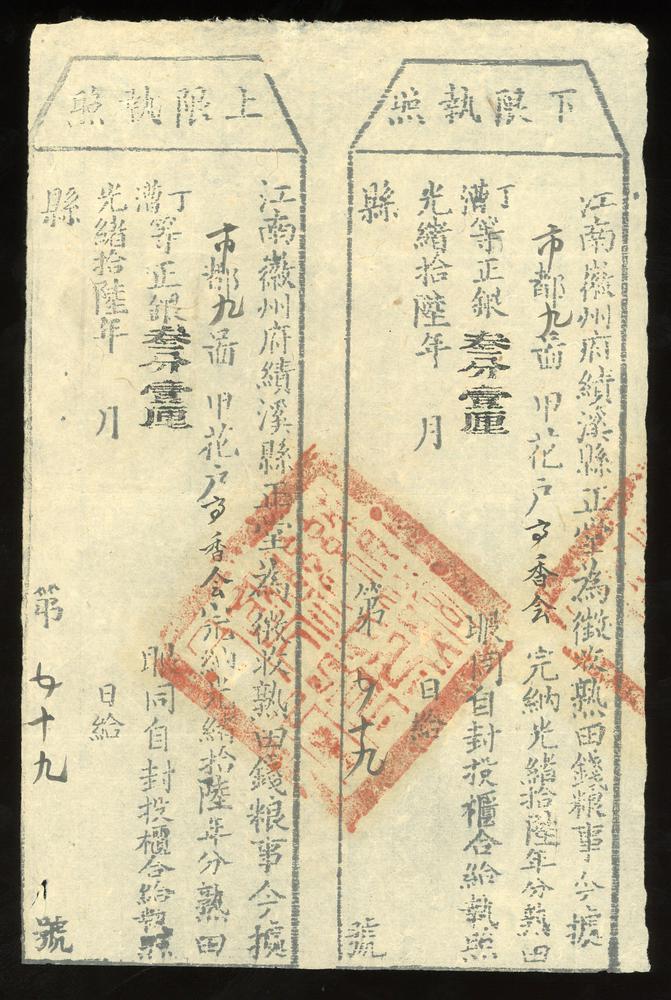 下限執照
江南徽州府績溪縣正堂為徵收熟田錢粮事今據
市都九啚 甲花戶 香会 完納光緒拾陸年分熟田
丁漕等正銀叁分壹厘 眼同自封投櫃合給執照
光緒拾陸年 月 日給
縣 第 十九 號
上限執照
江南徽州府績溪縣正堂為徵收熟田錢粮事今據
市都九啚 甲花戶 香会 完納光緒拾陸年分熟田
丁漕等正銀叁分壹厘 眼同自封投櫃合給執照
光緒拾陸年 月 日給
縣 第 十九 號